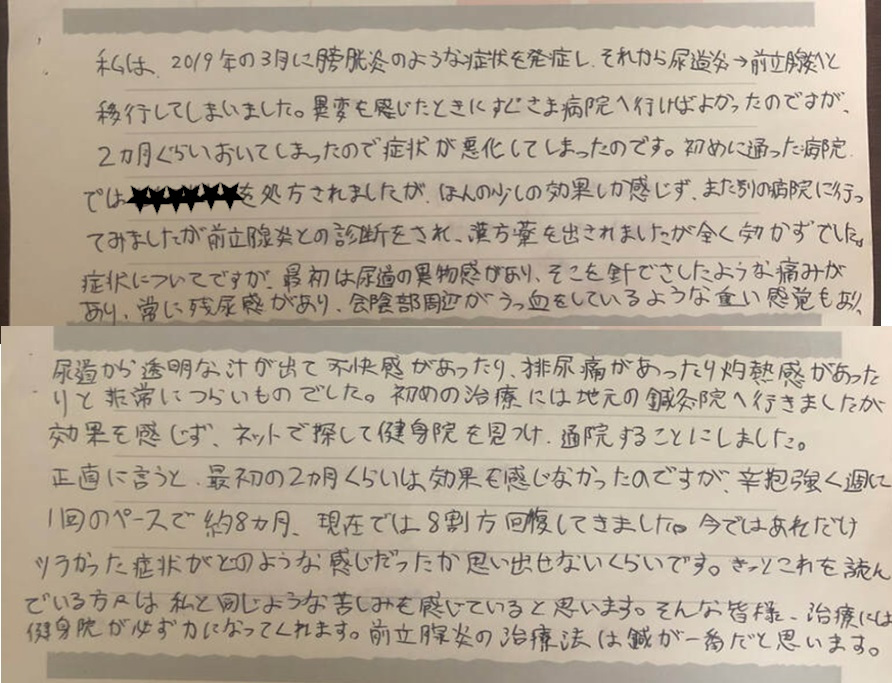 私は、2019年の3月に膀胱炎のような症状を発症し、それから尿道炎→前立腺炎へと
移行してしまいました。異変を感じたときにすぐさま病院へ行けばよかったのですが、
2カ月くらいおいてしまったので症状が悪化してしまったのです。初めに通った病院
では★★★★★★を処方されましたが、ほんの少しの効果しか感じず、また別の病院に行っ
てみましたが前立腺炎との診断をされ、漢方薬を出されましたが全く効かずでした。
症状についてですが、最初は尿道の異物感があり、そこを針でさしたような痛みが
あり、常に残尿感があり、会陰部周辺がうっ血をしているような重い感覚もあり、
尿道から透明な汁が出て不快感があったり、排尿痛があったり灼熱感があった
りと非常につらいものでした。初めの治療には地元の鍼灸院へ行きましたが
効果を感じず、ネットで探して健身院を見つけ、通院することにしました。
正直に言うと、最初の2カ月くらいは効果を感じなかったのですが、辛抱強く週に
1回のペースで約8カ月、現在では8割方回復してきました。今ではあれだけ
ツラかった症状がどのような感じだったか思い出せないくらいです。きっとこれを読ん
でいる方々は私と同じような苦しみを感じていると思います。そんな皆様、治療には
健身院が必ず力になってくれます。前立腺炎の治療法は鍼が一番だと思います。